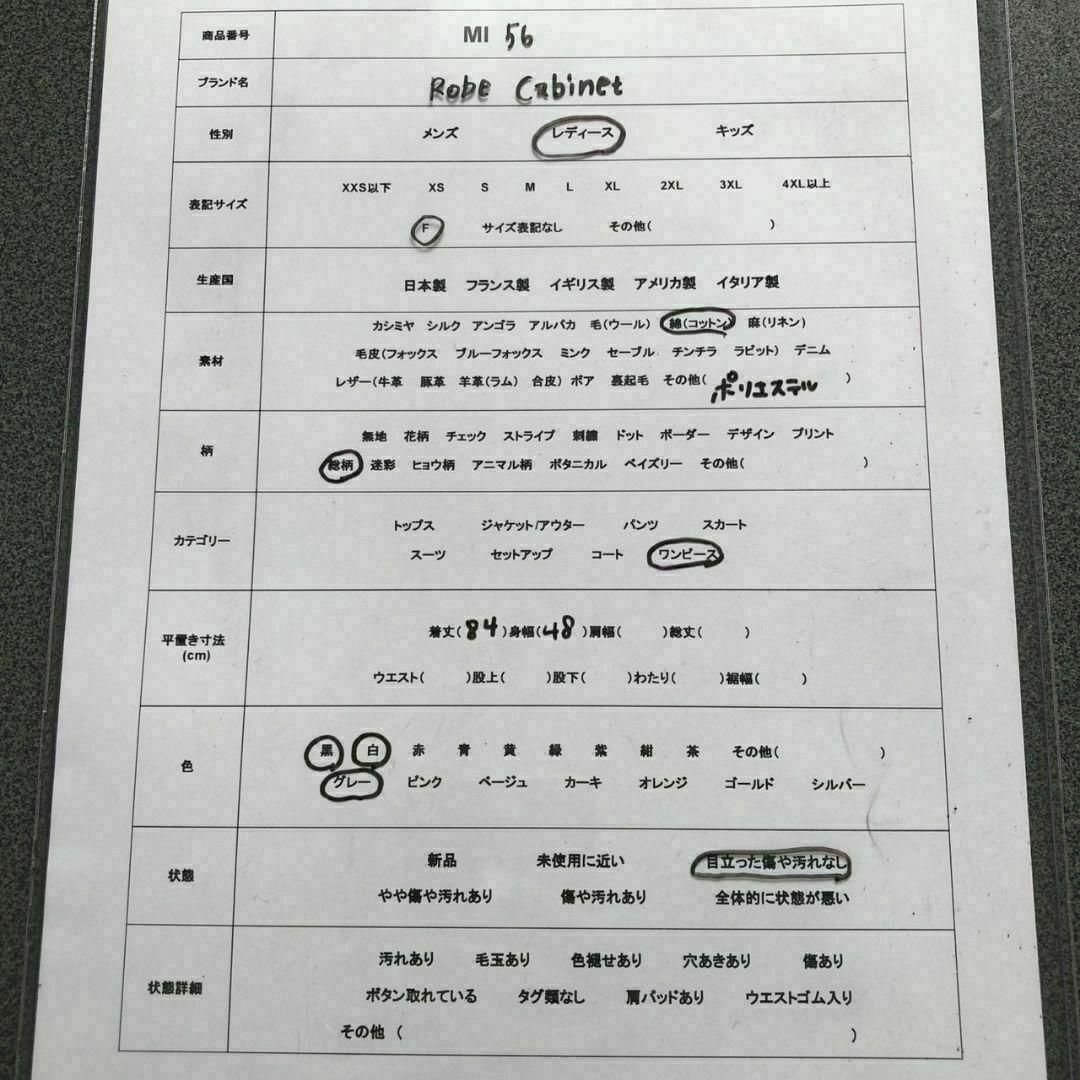 商品番号 MI 56
ブランド名 Robe Cabinet
性別 メンズ レディース キッズ
XXS以下 XS S M L XL 2XL 3XL 4XL以上
表記サイズ
F サイズ表記なし その他( )
生産国 日本製 フランス製 イギリス製 アメリカ製 イタリア製
カシミヤ シルク アンゴラ アルパカ 毛(ウール) 綿(コットン) 麻(リネン)
素材 毛皮(フォックス ブルーフォックス ミンク セーブル チンチラ ラビット) デニム
レザー(牛革 豚革 羊革(ラム) 合皮) ボア 裏起毛 その他( ポリエステル )
柄 無地 花柄 チェック ストライプ 刺繍 ドット ボーダー デザイン プリント
総柄 迷彩 ヒョウ柄 アニマル柄 ボタニカル ペイズリー その他( )
カテゴリー トップス ジャケット/アウター パンツ スカート
スーツ セットアップ コート ワンピース
平置き寸法 着丈( 84 )身幅( 48 )肩幅( )総丈( )
(cm)
ウエスト( )股上( )股下( )わたり( )裾幅( )
色 黒 白 赤 青 黄 緑 紫 紺 茶 その他( )
グレー ピンク ベージュ カーキ オレンジ ゴールド シルバー
状態 新品 未使用に近い 目立った傷や汚れなし
やや傷や汚れあり 傷や汚れあり 全体的に状態が悪い
汚れあり 毛玉あり 色褪せあり 穴あきあり 傷あり
状態詳細 ボタン取れている タグ類なし 肩パッドあり ウエストゴム入り
その他 ( )